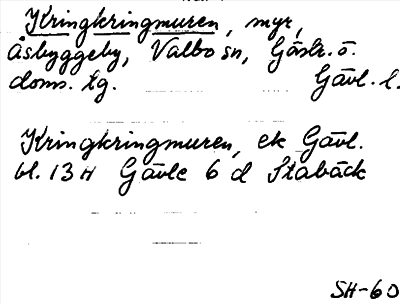 Kringkringmuren, myr,
Åsbyggeby, Valbo sn, Gästr. ö.
doms. tg. Gävl. l.
Kringkringmuren, ek Gävl.
bl. 13 H Gävle 6 d Stabäck
SH-60